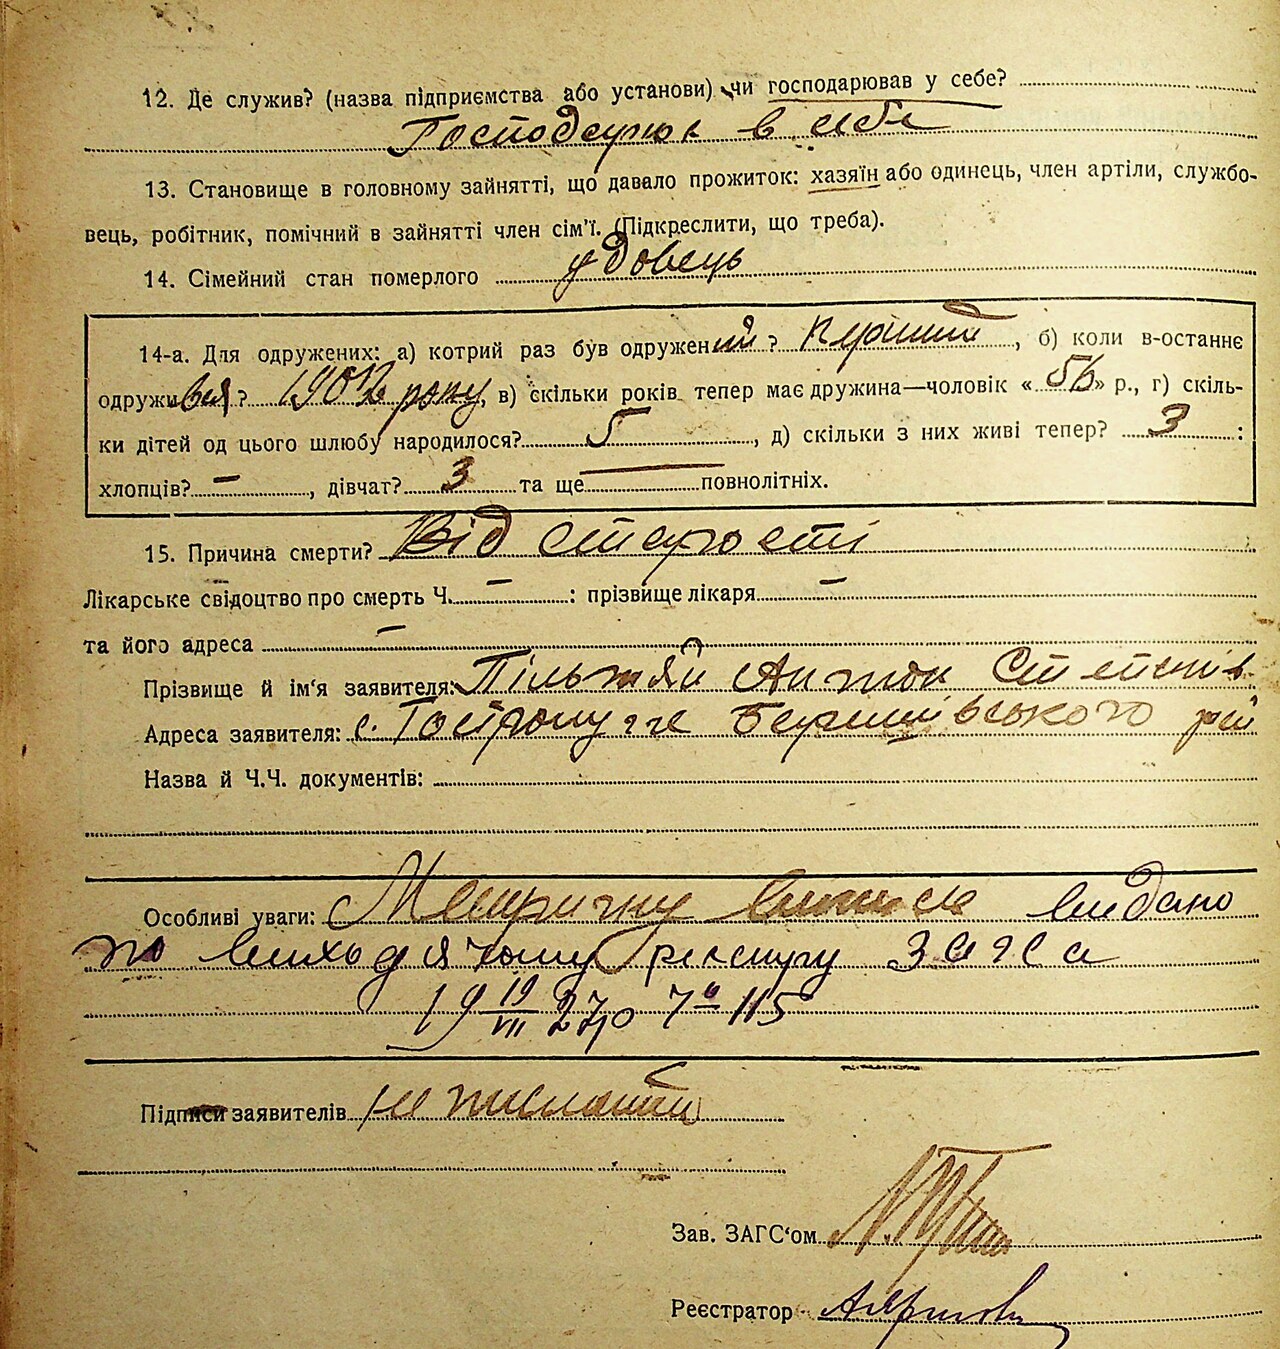 12. Де служив? (назва підприємства або установи) чи господарював у себе?
Господарює в себе
13. Становище в головному зайнятті, що давало прожиток: хазяїн або одинець, член артіли, службо-
вець, робітник, помічний в зайнятті член сім'ї. (Підкреслити, що треба).
14. Сімейний стан померлого удовець
14-а. Для одружених: а) котрий раз був одружений? перший, б) коли в-останнє
одруживсь? року, в) скільки років тепер має дружина—чоловік «56» р., г) скіль-
ки дітей од цього шлюбу народилося? 5, д) скільки з них живі тепер? 3:
хлопців? –, дівчат? 3 та ще — повнолітніх.
15. Причина смерти? Від старості
Лікарське свідоцтво про смерть Ч. –: прізвище лікаря –
та його адреса –
Прізвище й ім'я заявителя: Антон Степанів
Адреса заявителя: с. Бершадського рай
Назва й Ч.Ч. документів:
Особливі уваги: Метричну випись видано
по виходячому реєстру загса
19 19/VII 27 р 115
Підписи заявителів
Зав. ЗАГС'ом
Реєстратор